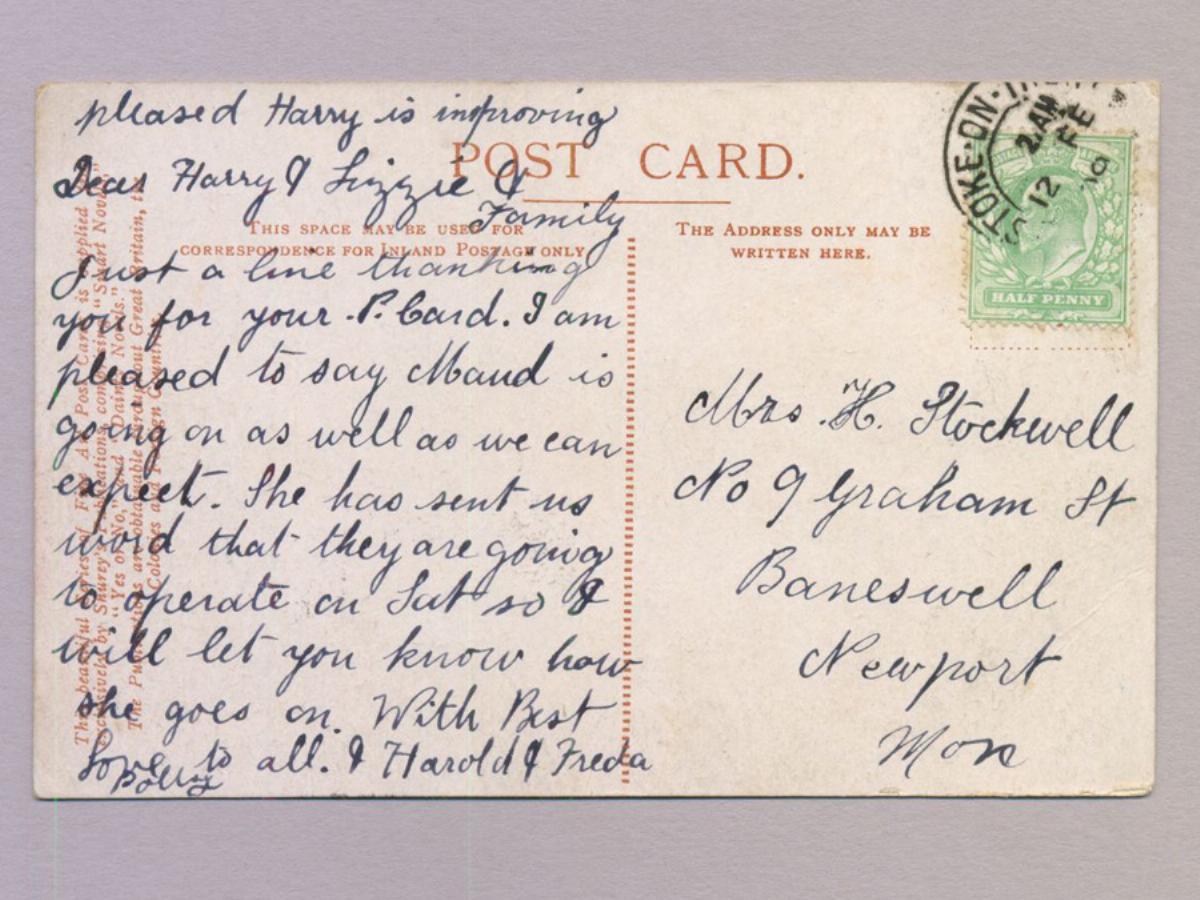 pleased Harry is improving
Dear Harry & Lizzie &
Family
Just a line thanking
you for your P. Card. I am
pleased to say Maud is
going on as well as we can
expect. She has sent us
word that they are going
to operate on Sat so I
will let you know how
she goes on. With Best
Love to all. & Harold & Freda
Polly
POST CARD.
THIS SPACE MAY BE USED FOR
CORRESPONDENCE FOR INLAND POSTAGE ONLY
THE ADDRESS ONLY MAY BE
WRITTEN HERE.
Mrs. H. Stockwell
No 9 Graham St
Baneswell
Newport
Mon
STOKE-ON-TRENT
2 AM
12 FE
HALF PENNY
The beautiful Series of Fine Art Post Cards is supplied
exclusively by Shurey's Publications, comprising "Smart Novels,"
"Yes or No," and "Dainty Novels."
The Publications are obtainable throughout Great Britain, the
Colonies and Foreign Countries.